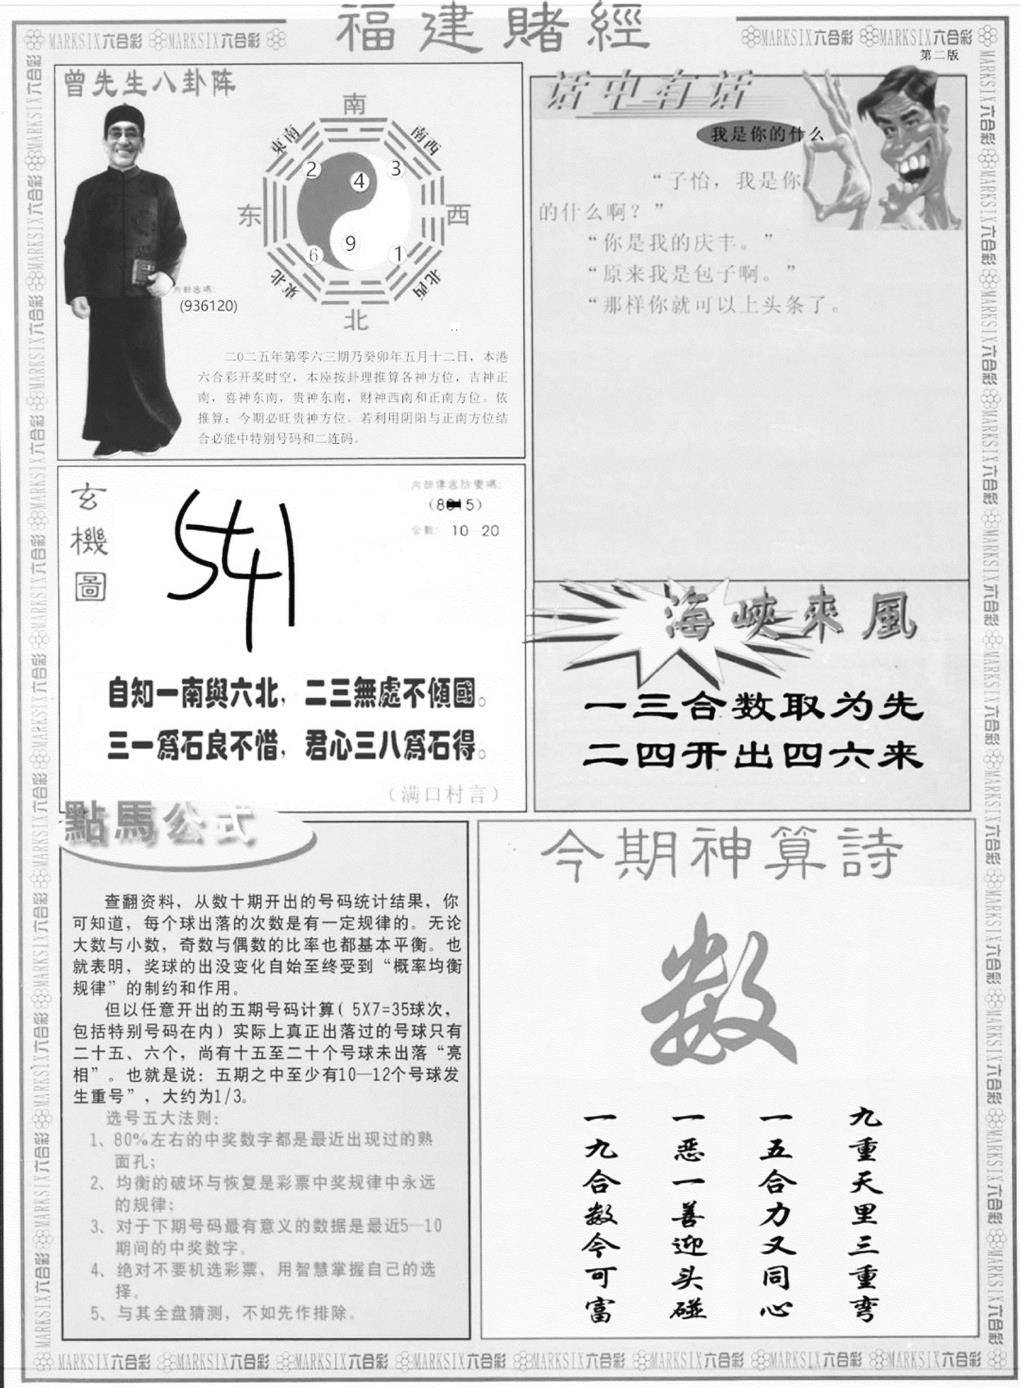 福建賭經
MARKSIX六合彩 MARKSIX六合彩
MARKSIX六合彩 MARKSIX六合彩
第二版
曾先生八卦阵
南
東南
南西
2
4
3
东
西
6
9
1
東北
北西
北
(936120)
二0二五年第零六三期乃癸卯年五月十二日，本港
六合彩开奖时空，本座按卦理推算各神方位，吉神正
南，喜神东南，贵神东南，财神西南和正南方位。依
推算：今期必旺贵神方位。若利用阴阳与正南方位结
合必能中特别号码和二连码。
话中有话
我是你的什么
“子怡，我是你
的什么啊？”
“你是我的庆丰。”
“原来我是包子啊。”
“那样你就可以上头条了。
玄機圖
10 20
541
自知一南與六北，二三無處不傾國。
三一爲石良不惜，君心三八爲石得。
（满口村言）
海峽來風
一三合数取为先
二四开出四六来
點馬公式
查翻资料，从数十期开出的号码统计结果，你
可知道，每个球出落的次数是有一定规律的。无论
大数与小数，奇数与偶数的比率也都基本平衡。也
就表明，奖球的出没变化自始至终受到“概率均衡
规律”的制约和作用。
但以任意开出的五期号码计算( 5X7=35球次，
包括特别号码在内）实际上真正出落过的号球只有
二十五、六个，尚有十五至二十个号球未出落“亮
相”。也就是说：五期之中至少有10—12个号球发
生重号”，大约为1/3。
选号五大法则：
1、80%左右的中奖数字都是最近出现过的熟
面孔；
2、均衡的破坏与恢复是彩票中奖规律中永远
的规律；
3、对于下期号码最有意义的数据是最近5—10
期间的中奖数字。
4、绝对不要机选彩票，用智慧掌握自己的选
择。
5、与其全盘猜测，不如先作排除。
今期神算詩
数
九重天里三重弯
一五合力又同心
一恶一善迎头碰
一九合数今可富
MARKSIX六合彩 MARKSIX六合彩 MARKSIX六合彩 MARKSIX六合彩 MARKSIX六合彩 MARKSIX六合彩 MARKSIX六合彩 MARKSIX六合彩